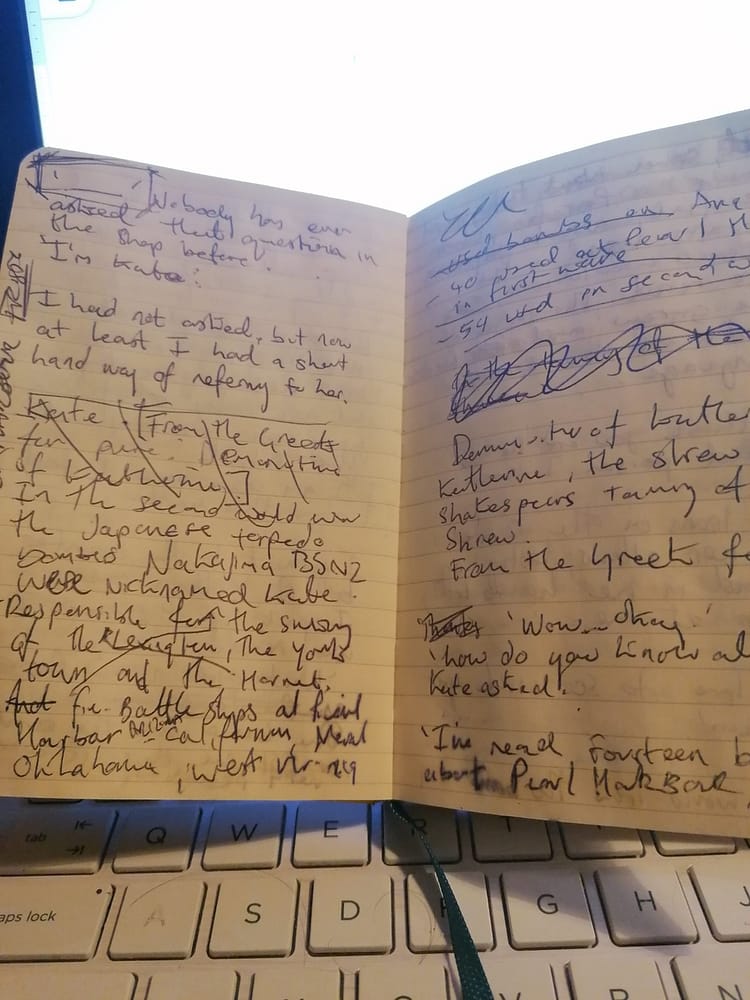 Nobody has ever
asked that question in
the shop before.
'I'm Kate.'
I had not asked, but now
at least I had a short
hand way of referring to her.
Kate [From the Greek
for pure. Demonutive
of Katherine]
In the second world war
the Japanese torpedo
bomber Nakajima B5N2
were nicknamed Kate.
Responsible for the sinking
of the Lexington, the York
town and the Hornet.
And five Battleships at Pearl
Harbor Arizona California,
Oklahoma, West Virginia
used bombs on
- 40 used at Pearl H
in first wave
- 54 used in second w
In the taming of the
Deminutive of Kather
Katherine, the shrew
Shakespears Taming of
Shrew.
From the Greek fo
'Wow... Okay.'
'how do you know al
Kate asked.
'I've read fourteen b
about Pearl Harbour
tab
Q
W
E
R
caps lock
A
S
D
G
H
J